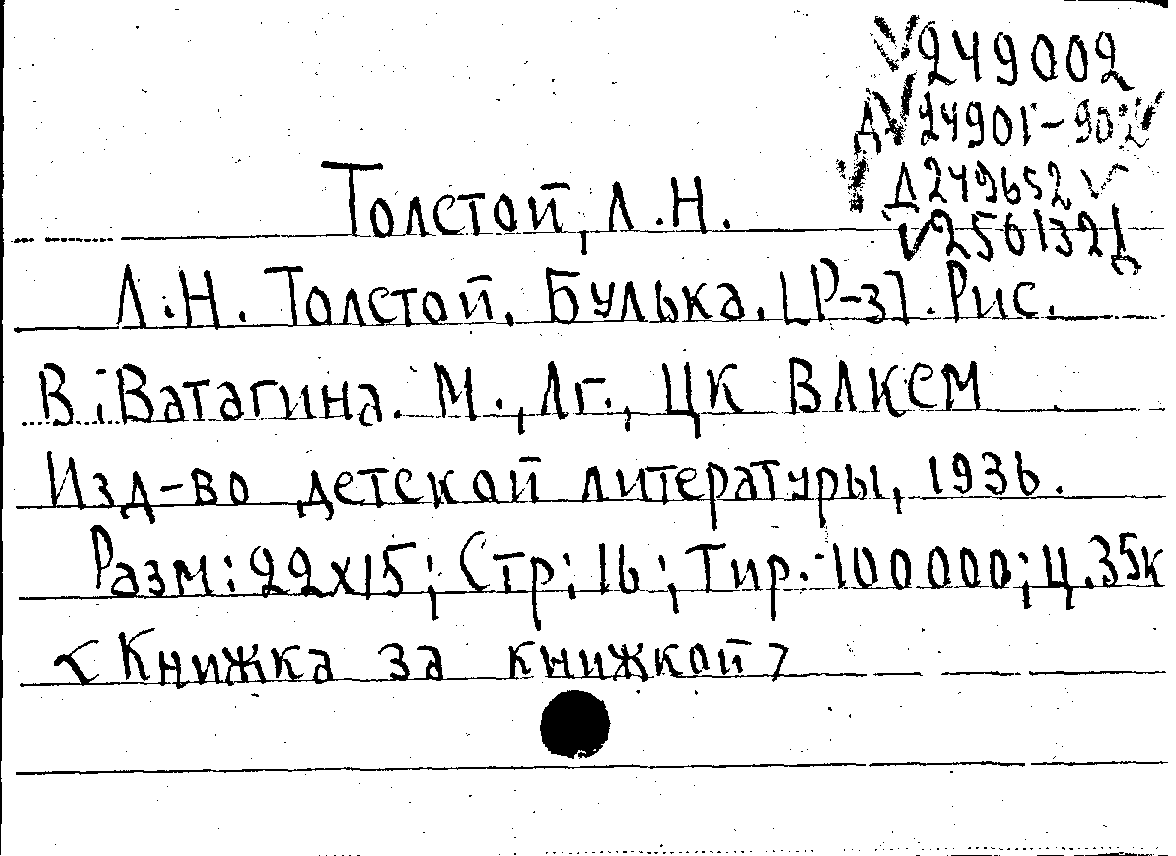 √249002
Д√24901-902√
√ Д249652√
√256132Д
Толстой, Л.Н.
Л.Н. Толстой. Булька. [Р-з]. Рис.
В. Ватагина. М., Лг., ЦК ВЛКСМ
Изд-во детской литературы, 1936.
Разм: 22х15; Стр: 16; Тир. 100000; Ц.35к
<Книжка за книжкой>